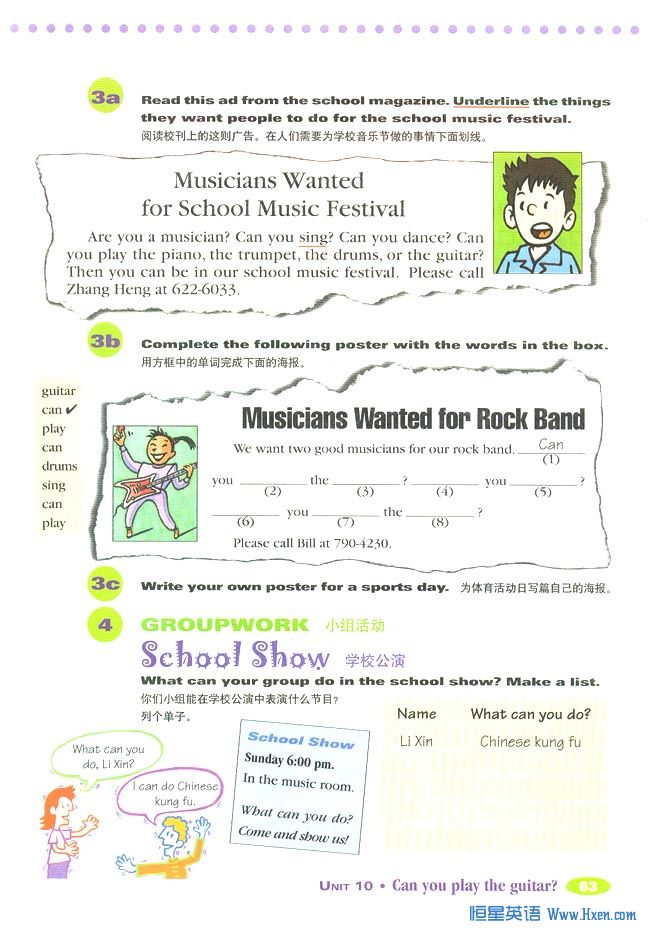 3a Read this ad from the school magazine. Underline the things
they want people to do for the school music festival.
阅读校刊上的这则广告。在人们需要为学校音乐节做的事情下面划线。
Musicians Wanted
for School Music Festival
Are you a musician? Can you sing? Can you dance? Can
you play the piano, the trumpet, the drums, or the guitar?
Then you can be in our school music festival. Please call
Zhang Heng at 622-6033.
3b Complete the following poster with the words in the box.
用方框中的单词完成下面的海报。
guitar
can ✔
play
can
drums
sing
can
play
Musicians Wanted for Rock Band
We want two good musicians for our rock band. Can
(1)
you ________ the ________? ________ you ________?
(2) (3) (4) (5)
________ you ________ the ________?
(6) (7) (8)
Please call Bill at 790-4230.
3c Write your own poster for a sports day. 为体育活动日写篇自己的海报。
4 GROUPWORK 小组活动
School Show 学校公演
What can your group do in the school show? Make a list.
你们小组能在学校公演中表演什么节目?
列个单子。
What can you
do, Li Xin?
I can do Chinese
kung fu.
School Show
Sunday 6:00 pm.
In the music room.
What can you do?
Come and show us!
Name What can you do?
Li Xin Chinese kung fu
UNIT 10 • Can you play the guitar? 63
恒星英语 Www.Hxen.com